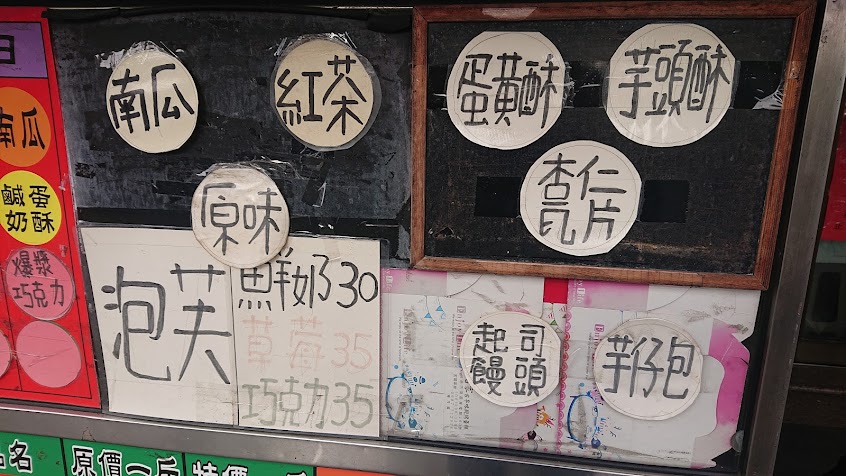 日
南瓜
鹹蛋
奶酥
爆漿
巧克力
南瓜
紅茶
原味
泡芙
鮮奶30
草莓35
巧克力35
蛋黃酥
芋頭酥
杏仁
瓦片
起司
饅頭
芋仔包
品名
原價一斤
特價